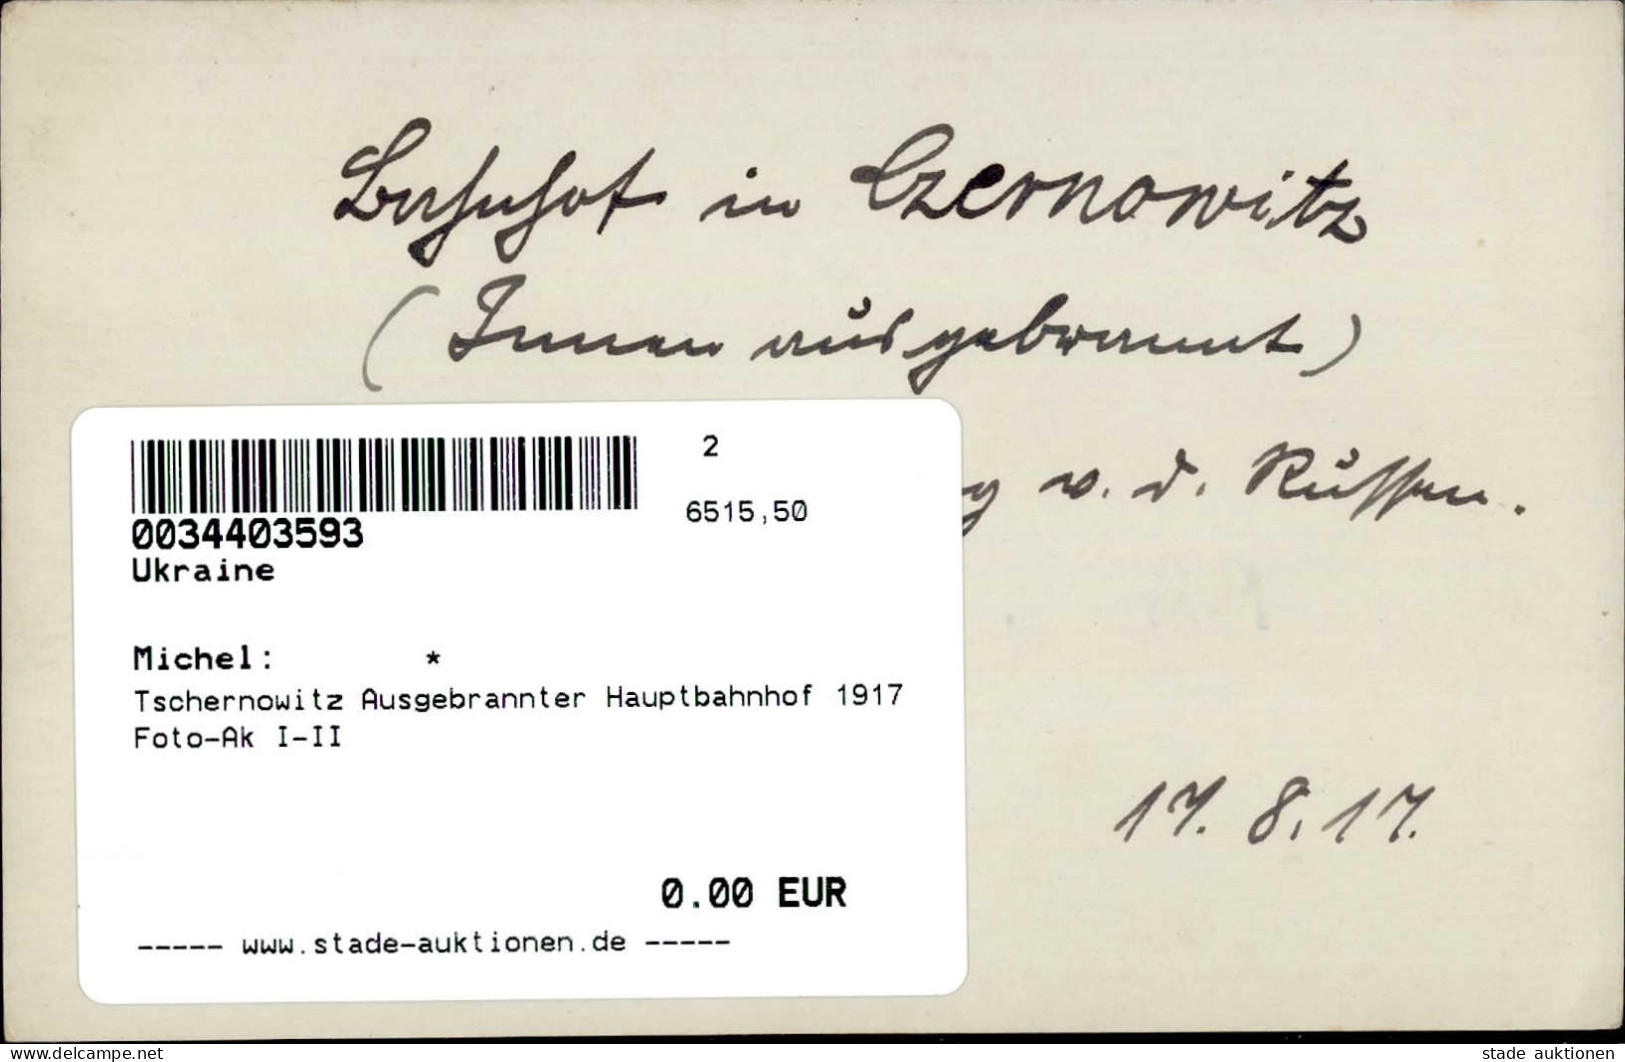 Bahnhof in Czernowitz
(Innen ausgebrannt)
g v. d. Russen.
17. 8. 17.
2
6515,50
0034403593
Ukraine
Michel: *
Tschernowitz Ausgebrannter Hauptbahnhof 1917
Foto-Ak I-II
0.00 EUR
----- www.stade-auktionen.de -----
www.delcampe.net
stade auktionen